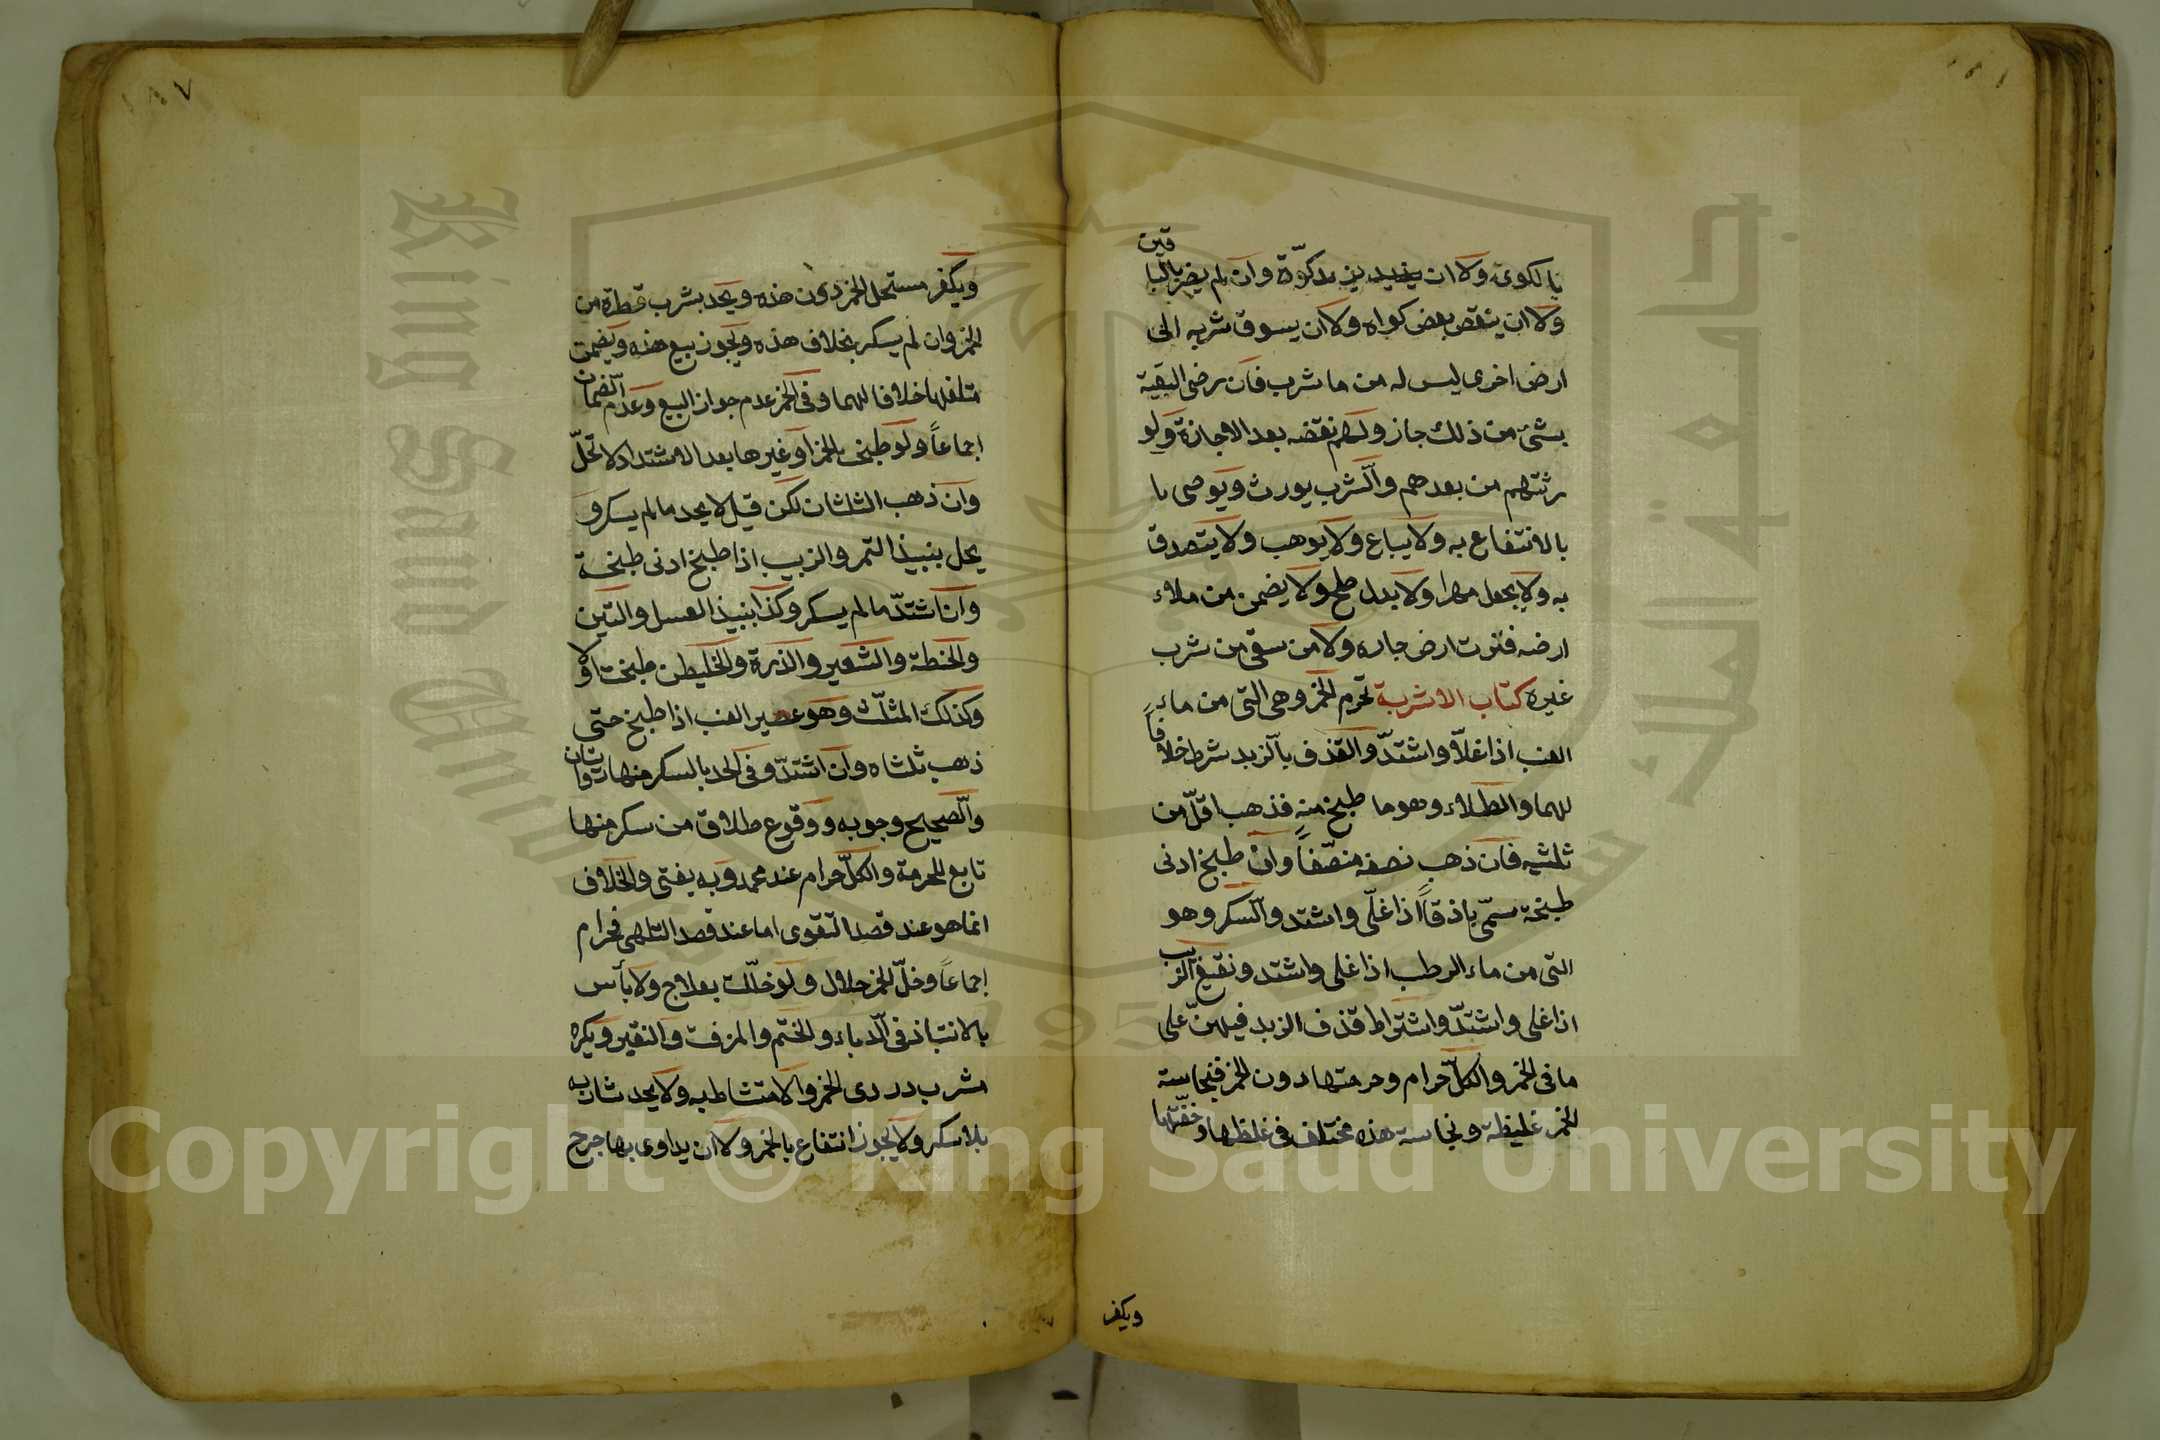 ١٨٦
بالكوى ولا ان يزيد كوة وان لم يضر بالباقين
ولا ان ينقص بعض كواه ولا ان يسوق شربه الى
ارض اخرى ليس له من ها شرب فان رضى البقية
بشئ من ذلك جاز ولهم نقضه بعد الاجازة ولو
رثتهم من بعدهم والشرب يورث ويوصى با
بالانتفاع به ولا يباع ولا يوهب ولا يتصدق
به ولا يجعل مهرا ولا بدل صلح ولا يضمن من ملاء
ارضه فنزت ارض جاره ولا من سقى من شرب
غيره كتاب الاشربة تحرم الخمر وهى التى من ماء
العنب اذا غلا واشتد والقذف بالزبد شرط خلافاً
لهما والطلاء وهو ما طبخ منه فذهب اقل من
ثلثيه فان ذهب نصفه منصفاً وان طبخ ادنى
طبخة سمى باذقاً اذا غلى واشتد والسكر وهو
التى من ماء الرطب اذا غلى واشتد ونقيع الزبيب
اذا غلى واشتد واشتراط قذف الزبد فيهن على
ما فى الخمر والكل حرام وحرمتها دون الخمر فنجاسة
الخمر غليظة ونجاسة هذه مختلف فى غلظها وخفتها
ويكفر
١٨٧
ويكفر مستحل الخمر دون هذه ويحد بشرب قطرة من
الخمر وان لم يسكر بخلاف هذه ويجوز بيع هذه ويضمن
متلفها خلافا لهما وفى الخمر عدم جواز البيع وعدم الضمان
اجماعاً ولو طبخت الخمر او غيرها بعد الاشتداد لا تحل
وان ذهب الثلثان لكن قيل لا يحد ما لم يسكر و
يحل بنبيذ التمر والزبيب اذا طبخ ادنى طبخة
وان اشتد ما لم يسكر وكذا بنبيذ العسل والتين
والحنطة والشعير والذرة والخليطن طبخت اولا
وكذلك المثلث وهو عصير العنب اذا طبخ حتى
ذهب ثلثاه وان اشتد وفى الحد بالسكر منها روايتان
والصحيح وجوبه ووقوع طلاق من سكر منها
تابع للحرمة والكل حرام عند محمد وبه يفتى والخلاف
انما هو عند قصد التقوى اما عند قصد التلهى فحرام
اجماعاً وخل الخمر حلال ولو خللت بعلاج ولا بأس
بالانتباذ فى الدباء والحنتم والمزفت والنقير ويكره
شرب دردى الخمر والامتشاط به ولا يحد شاربه
بلا سكر ولا يجوز انتفاع بالخمر ولا ان يداوى بها جرح
King Saud University
جامعة الملك سعود
1957
Copyright © King Saud University